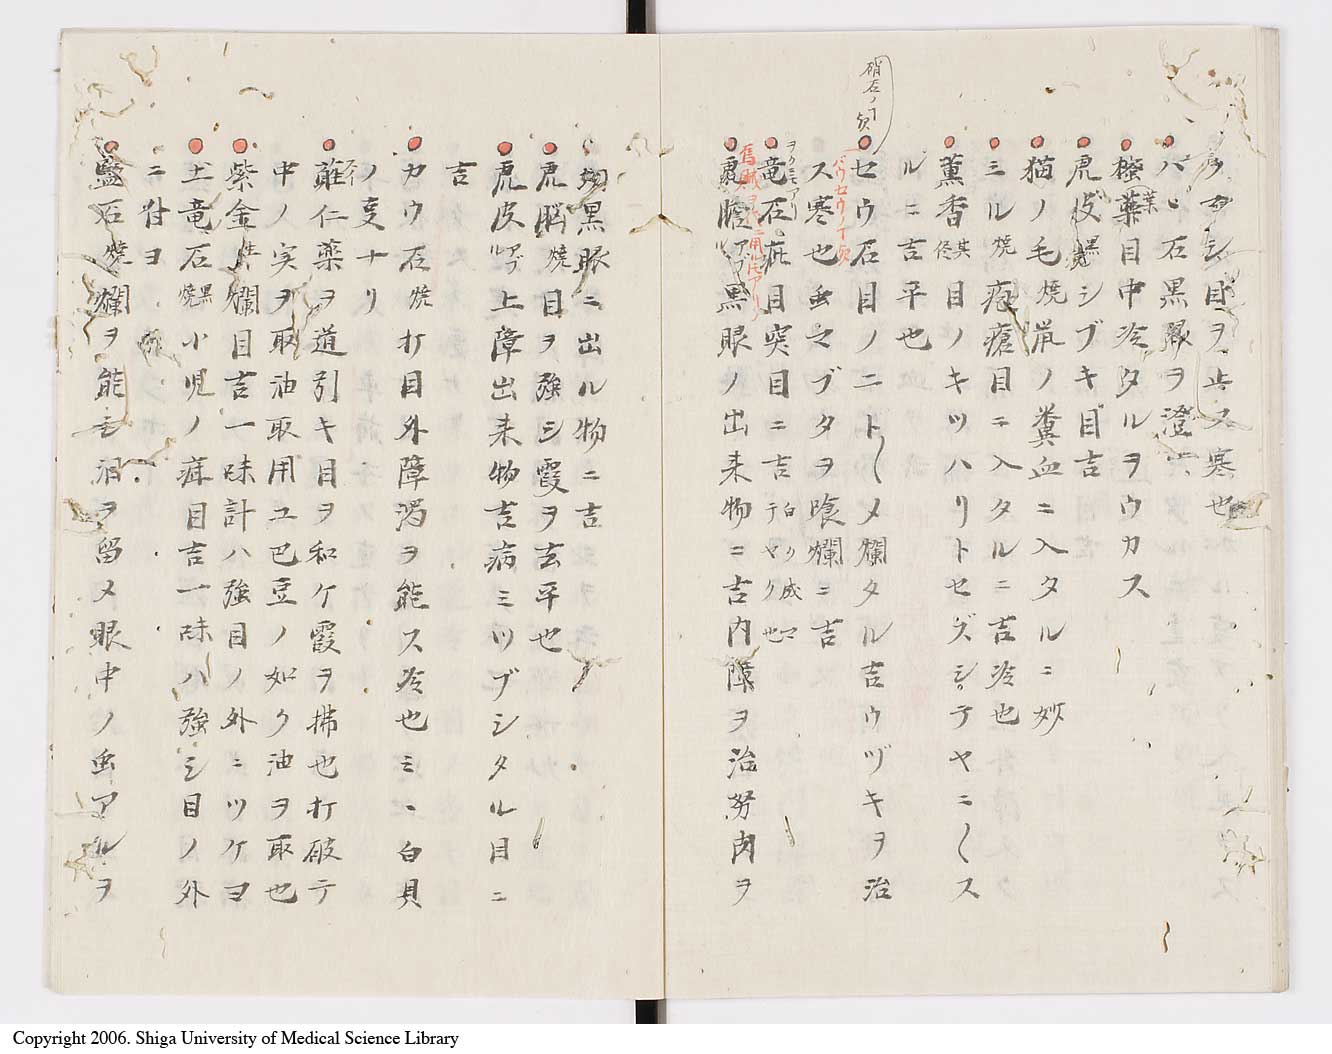 タヽシ目ヲ止ス寒也
ハヽ石黒眼ヲ澄ス
橑葉目中冷タルヲウカス
虎皮黒焼シブキ目吉
猫ノ毛焼鼡ノ糞血ニ入タルニ妙
ミル焼疱瘡目ニ入タルニ吉冷也
薫香其侭目ノキツハリトセズシテヤニ〱ス
ルニ吉平也
硝石ノ丁欤
セウ石目ノニト〱メ爛タルニ吉ウヅキヲ治
バウセウノ丁欤
ス寒也虫之ブタヲ喰爛ニ吉
竜石疵目突目ニ吉
虎膽アブル黒眼ノ出来物ニ吉内障ヲ治努肉ヲ
黒眼ニ出ル物ニ吉
虎脳焼目ヲ強シ霞ヲ去平也
虎皮アブル上障出来物吉病ミツブシタル目ニ
吉
カウ石焼打目外障濁ヲ能ス冷也ミヽ白貝
ノ変ナリ
蕤仁薬ヲ道引キ目ヲ和ケ霞ヲ拂也打破テ
ズイ
中ノ実ヲ取油取用ユ巴豆ノ如ク油ヲ取也
紫金生爛目吉一味計ハ強目ノ外ニツケヨ
土竜石黒焼小児ノ疳目吉一味ハ強シ目ノ外
ニ付ヨ
盬石焼爛ヲ能シ泪ヲ留メ眼中ノ虫アルヲ
Copyright 2006. Shiga University of Medical Science Library